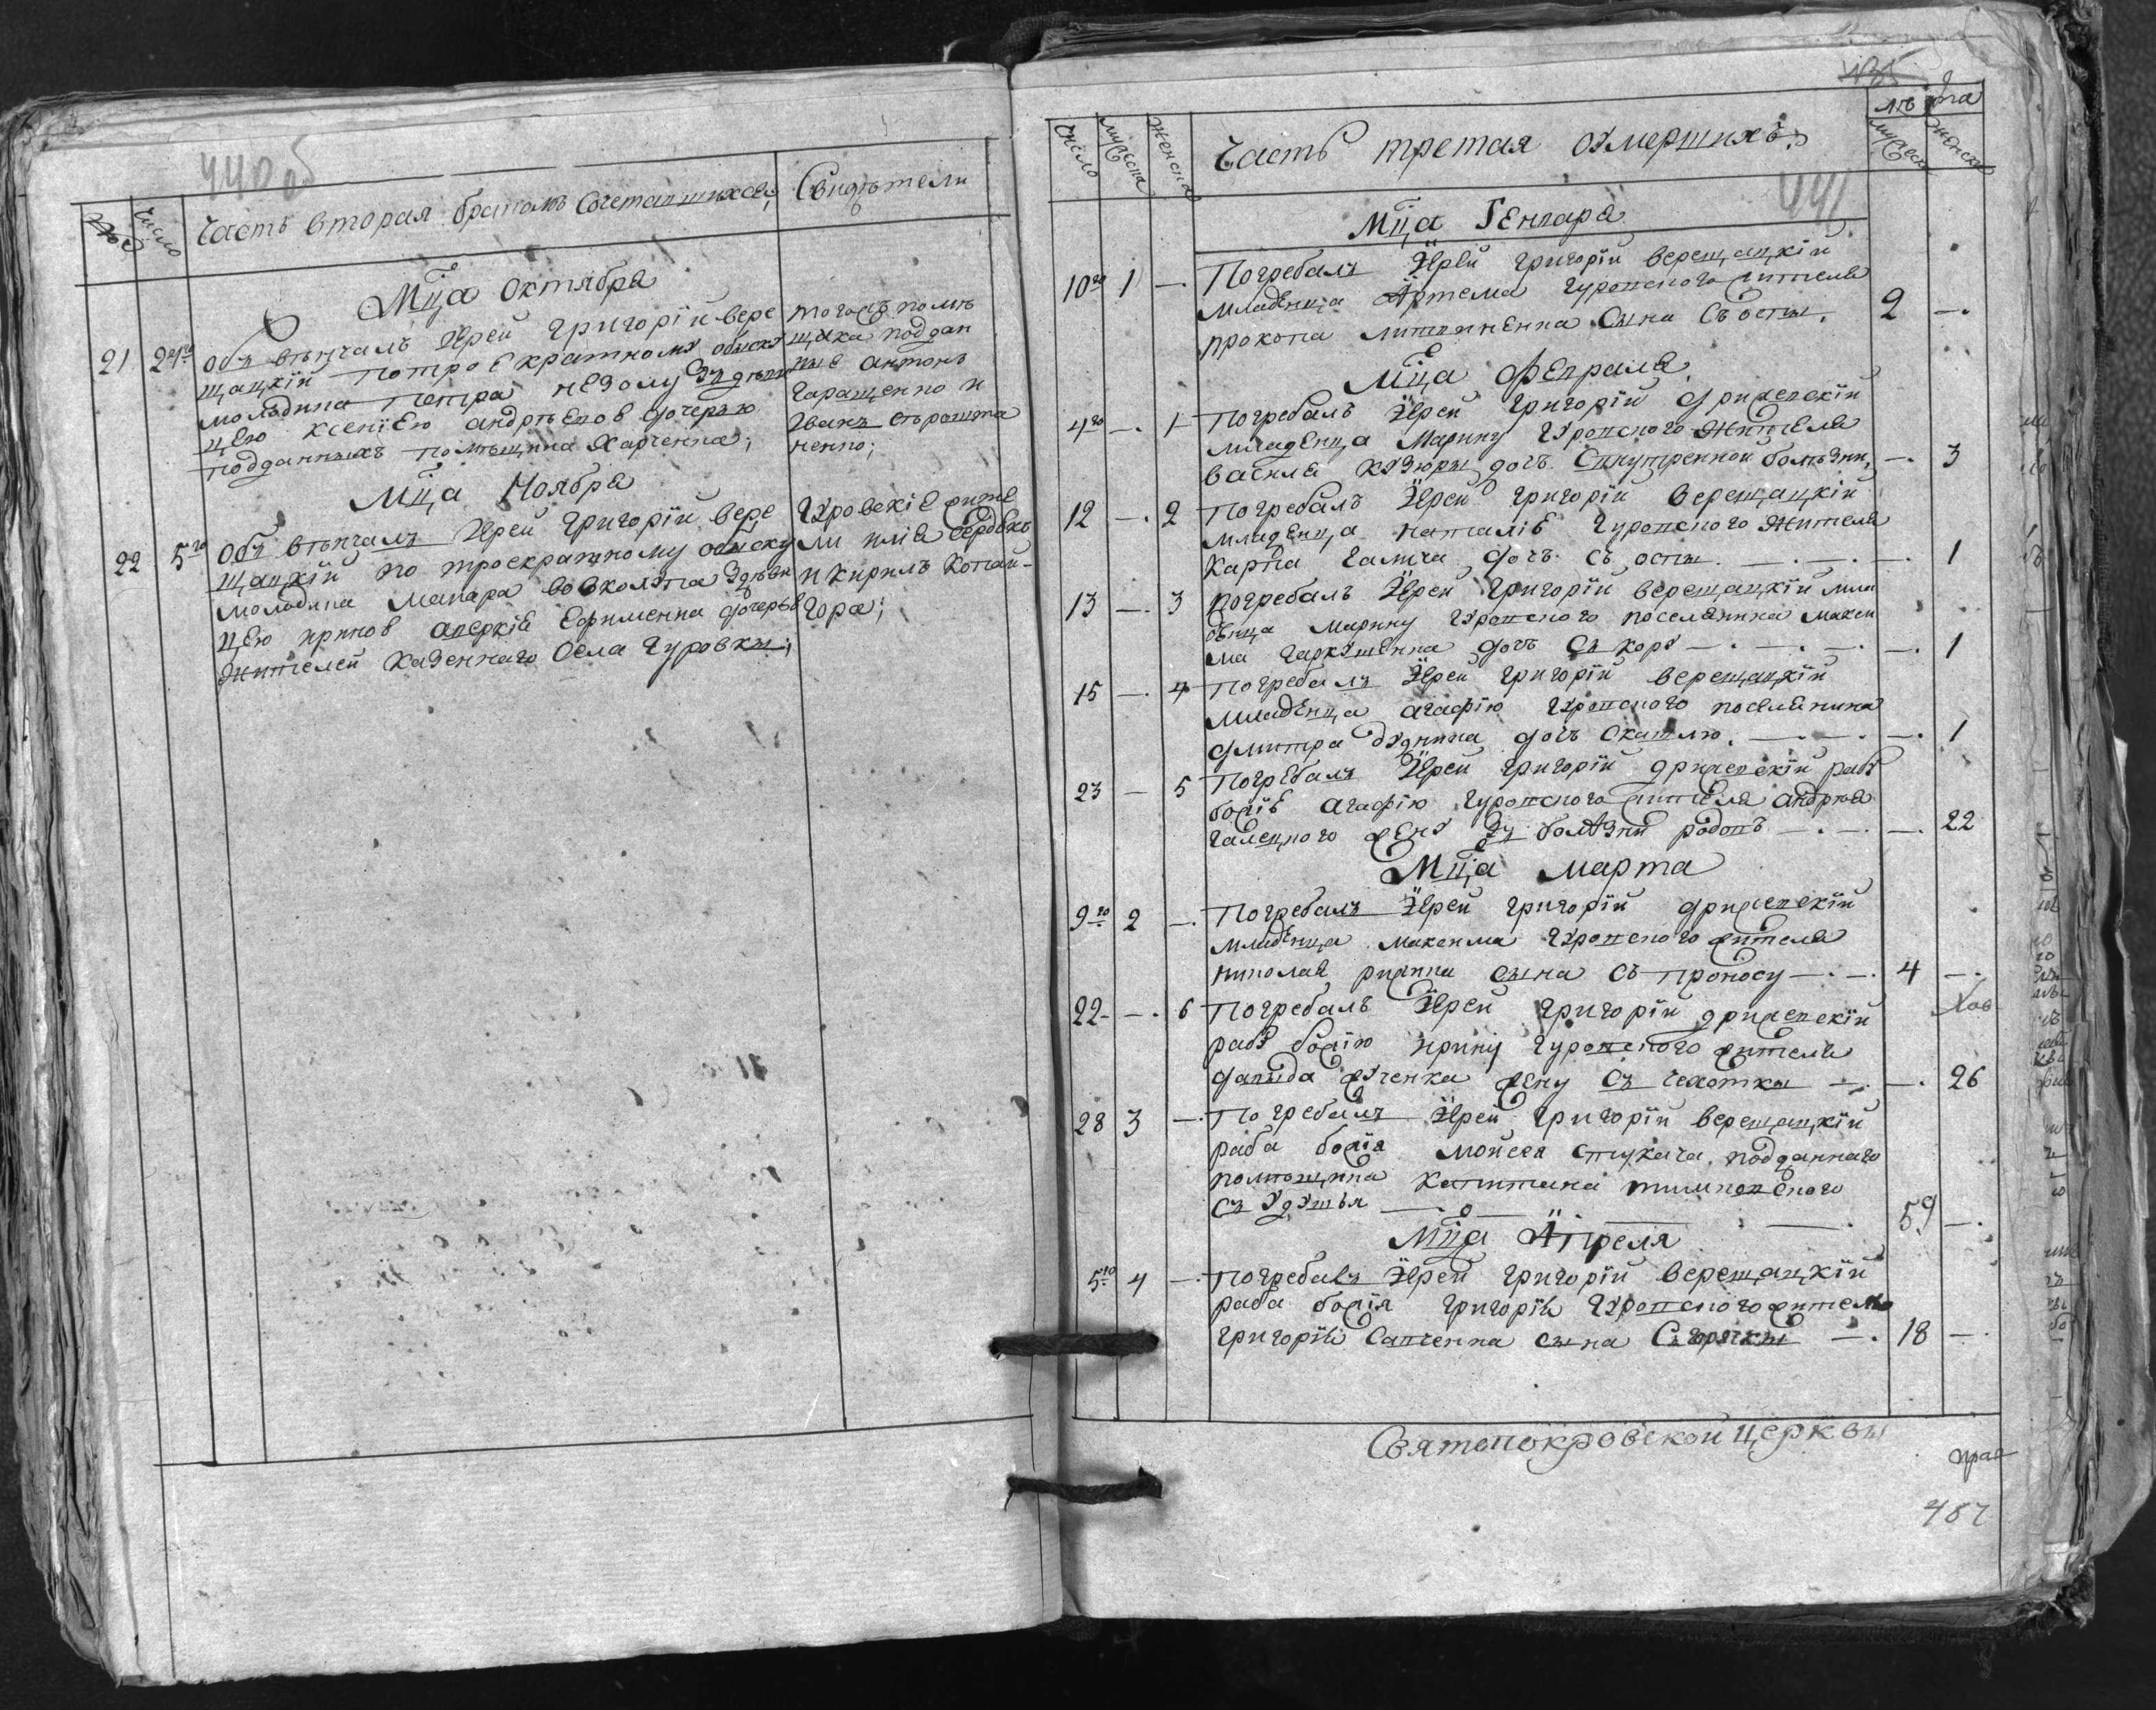 440 об
число
Часть вторая бракомъ сочетавшихся,
Свидѣтели
Мца Октября
21 24го Обвѣнчалъ Іерей Григорій Вере
щацкій по троекратному обыску
молодика Петра незолу зъ дѣви
цею Ксеніею Андрѣевою дочерью
подданныхъ помѣщика Харченка;
тогожъ помѣ
щика поддан
ные Антонъ
Геращенко и
Иванъ
ненко;
Мца Ноября
22 5го Обвѣнчалъ Іерей Григорій Вере
щацкій по троекратному обыску
молодика Макара Вовкотуа здѣви
цею Ириною Аверкія Ефименка дочерью
жителей казеннаго села Гуровки;
Гуровскіе жите
ли Илія Сердюкъ
и Кирилъ Копай-
гора;
435
число
мужеска
женска
Часть третая умершихъ
лѣта
мужеск
женск
441
Мца Генваря
10го 1 —. Погребалъ Іерей Григорій Верещацкій
младенца Артема Гуровского жителя
Прокопа Литвиненка сына съ оспы. 2 —.
Мца Февраля
4го —. 1 Погребалъ Іерей Григорій Држевскій
младенца Марину Гуровского жителя
Василя Кузюры дочь свнутренной болѣзни, —. 3
12 —. 2 Погребалъ Іерей Григорій Верещацкій
младенца Наталіе Гуровского жителя
Карпа Галича дочь съ оспы. —. —. —. 1
13 —. 3 Погребалъ Іерей Григорій Верещацкій мла
денца Марину Гуровского поселянина Макси
ма Гаркушенка дочь съ кору —. —. —. —. 1
15 —. 4 Погребалъ Іерей Григорій Верещацкій
младенца Агафію Гуровского поселянина
Дмитра Дудника дочь скашлю. —. —. —. 1
23 — 5 Погребалъ Іерей Григорій Држевскій рабу
божіе Агафію Гуровского жителя Андрѣя
Галецкого жену зъ болѣзни родовъ —. —. —. 22
Мца Марта
9го 2 —. Погребалъ Іерей Григорій Држевскій
младенца Максима Гуровского жителя
Николая сына съ проносу —. —. 4 —.
22 —. 6 Погребалъ Іерей Григорій Држевскій
рабу божію Ирину Гуровского жителя
Давыда жену съ чехотки —. —. 26
28 3 —. Погребалъ Іерей Григорій Верещацкій
раба божія Мойсея Стукача, подданнаго
помѣщика Капитана
съ удушья — 59 —.
Мца Апреля
5го 4 —. Погребалъ Іерей Григорій Верещацкій
раба божія Григорія Гуровского жителя
Григорія Савченка сына съ горячки —. 18 —.
Святопокровской церквы
487